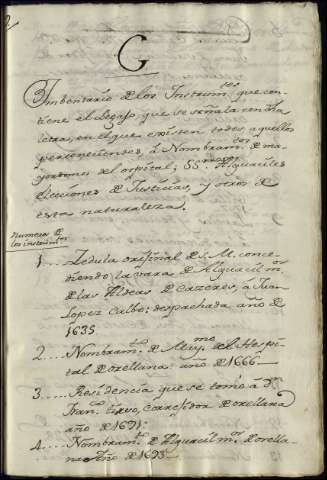 2
G
Imbentario de los Instrum.tos que con-
tiene el Legajo que se señala con dha
letra, en el que existen todos aquellos
pertenecientes à Nombram.tos de ma-
yordomos del ospital;
Alguaciles
elecciones de Justicias, y otros de
esta naturaleza.
Numeros de
los instrum.tos
1.... Zedula orijinal de S. M. conce-
diendo la vara de Alguacil m.or
de las Aldeas de Cazeres, à Juan
Lopez Calbo: despachada año de
1635
2.... Nombram.to de May.mo del Hospi-
tal de orellana: año de 1666
3.... Residencia que se tomò à D.n
Fran.co Correjidor de orellana
año de 1671:
4.... Nombram.to de Alguacil m.or de orella-
na Año de 1673